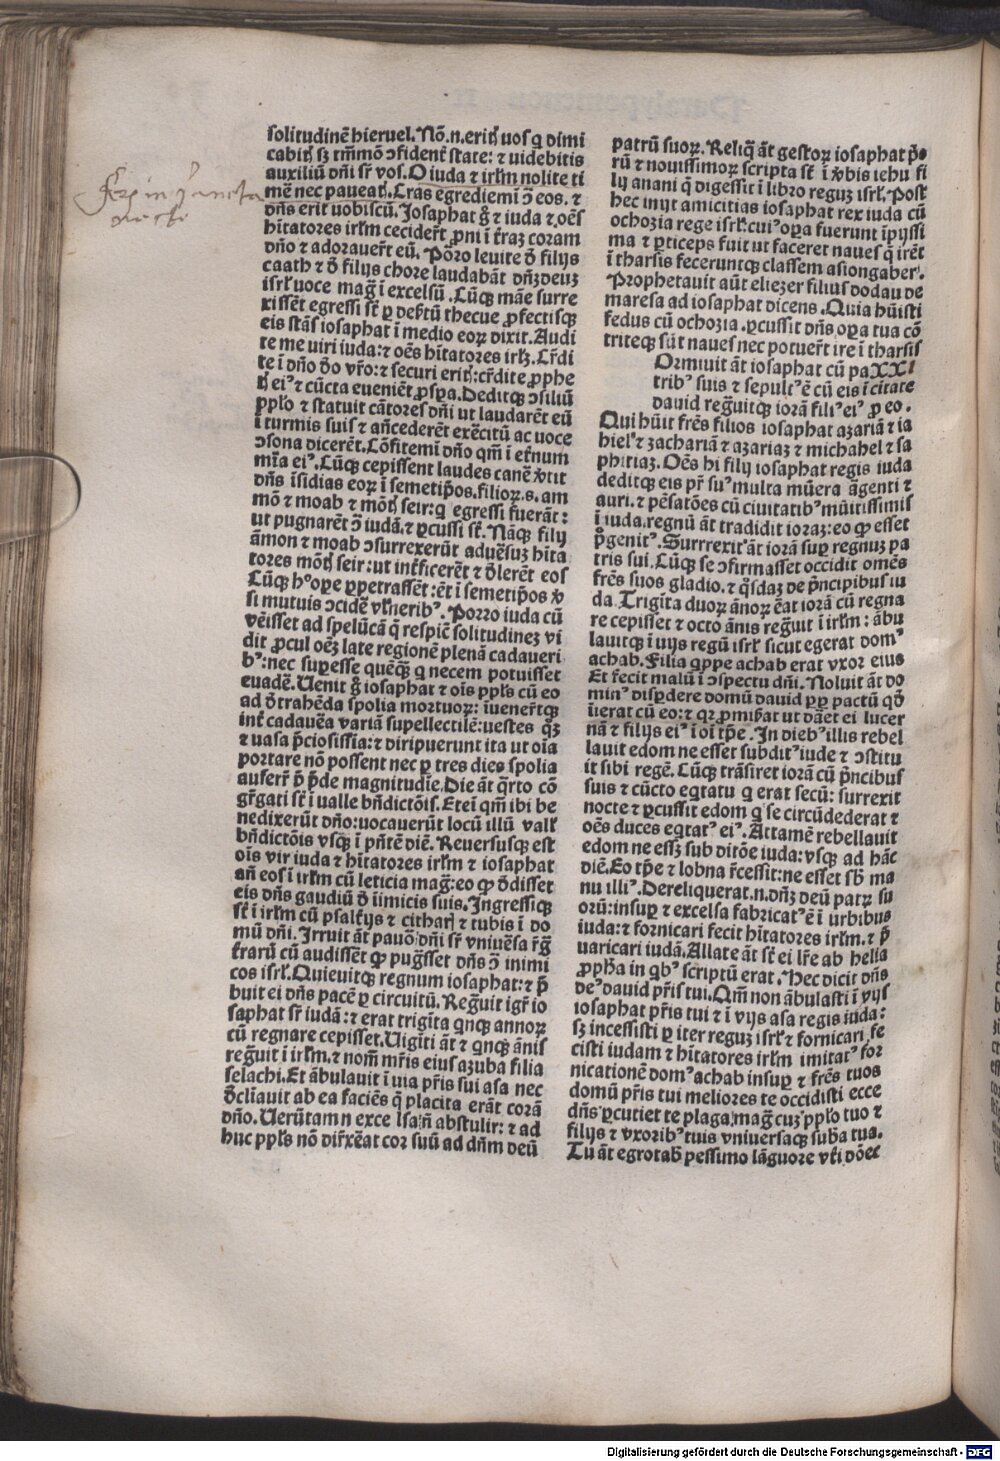 solitudinē hieruel. Nō.n.eritꝭ uos q dimi
cabitꝭ sꝫ tm̄mō ↄfident̄ state: ⁊ uidebitis
auxiliū dn̄i sr̄ vos. O iuda ⁊ irłm nolite ti
mē nec paueatꝭ. Cras egrediemī ↄ̄ eos. ⁊
dn̄s erit uobiscū. Josaphat g̊ ⁊ iuda ⁊ oēs
hītatores irłm cecider̄t ꝓni ī t̄raꝫ coram
dn̄o ⁊ adorauer̄t eū. Porō leuite ð filijs
caath ⁊ ð filijs chore laudabāt dn̄ꝫ deuꝫ
isrł uoce maḡ ī excelsū. Cūqꝫ māe surre
xissēt egressi st̄ ꝑ deb̄tū thecue ꝓfectisqꝫ
eis stās iosaphat ī medio eoꝝ dixit. Audi
te me uiri iuda: ⁊ oēs hītatores irłꝫ. Cr̄di
te ī dn̄o ðo vr̄o: ⁊ securi eritꝭ: cr̄dite ꝓphe
tꝭ eiꝰ ⁊ cūcta eueniēt ꝓsꝑa. Deditqꝫ ↄsiliū
ppło ⁊ statuit cātores dn̄i ut laudarēt eū
ī turmis suis ⁊ an̄cederēt exēcitū ac uoce
ↄsona dicerēt. Cōfitemī dn̄o qm̄ ī et̄num
mīa eiꝰ. Cūqꝫ cepissent laudes canē v̄tit
dn̄s īsidias eoꝝ ī semetip̄os. filioꝝ.s.am
mō ⁊ moab ⁊ mōtꝭ seir: q egressi fuerāt:
ut pugnarēt ↄ̄ iudā. ⁊ ꝑcussi st̄. Nāqꝫ filij
āmon ⁊ moab ↄsurrexerūt aduēsuꝫ hīta
tores mōtꝭ seir: ut int̄ficerēt ⁊ ðlerēt eos
Cūqꝫ hᵒ oꝑe ꝑpetrassēt: ēt ī semetip̄os v̄
si mutuis ↄcidē vłnerib⁹. Porro iuda cū
vēisset ad spelūcā q̄ respiē solitudineꝫ vi
dit ꝓcul oēꝫ late regionē plenā cadaueri
b⁹: nec suꝑesse quēqꝫ̄ q necem potuisset
euadē. Uenit g̊ iosaphat ⁊ oīs ppłs cū eo
ad ðtrahēda spolia mortuoꝝ: īuener̄tqꝫ
int̄ cadauēa variā supellectilē: uestes qꝫ
⁊ uasa p̄ciosissīa: ⁊ diripuerunt ita ut oīa
portare nō possent nec ꝑ tres dies spolia
auferr̄ p̄ p̄de magnitudīe. Die āt q̄rto cō
gr̄gati st̄ ī ualle bn̄dictōis. Etenī qm̄ ibi be
nedixerūt dn̄o: uocauerūt locū illū vałł
bn̄dictōis vsqꝫ ī pn̄tē diē. Reuersusqꝫ est
oīs vir iuda ⁊ hītatores irłm ⁊ iosaphat
an̄ eos ī irłm cū leticia maḡ: eo ꝙ ðdisset
eis dn̄s gaudiū ð īimicis suis. Ingressiqꝫ
st̄ ī irłm cū psalt̄ijs ⁊ citharꝭ ⁊ tubis ī do
mū dn̄i. Irruit āt pauō dn̄i sr̄ vniuēsa r̄ḡ
t̄rarū cū audissēt ꝙ pug̊sset dn̄s ↄ̄ inimi
cos isrł. Quieuitqꝫ regnum iosaphat: ⁊ p̄
buit ei dn̄s pacē ꝑ circuitū. Reg̊uit igr̄ io
saphat sr̄ iudā: ⁊ erat trigīta qnqꝫ annoꝝ
cū regnare cepisset. Uigīti āt ⁊ qnqꝫ ānis
reg̊uit ī irłm. ⁊ nom̄ mr̄is eius aꝫuba filia
selachi. Et ābulauit ī uia pr̄is sui asa nec
ðclīauit ab ea faciēs q̄ placita erāt corā
dn̄o. Uerūtam n exce lsa n̄ abstulir: ⁊ ad
huc ppłs nō dir̄xēat cor suū ad dn̄m deū
patrū suoꝝ. Reliq̄ āt gestoꝝ iosaphat p̄o
rū ⁊ nouissimoꝝ scripta st̄ ī v̄bis iehu fi
lij anani q digessit ī libro reguꝫ isrł. Post
hec inijt amicitias iosaphat rex iuda cū
ochoꝫia rege isrł: cuiꝰ oꝑa fuerunt īpijssi
ma ⁊ ꝑticeps fuit ut faceret naues q̄ irēt
ī tharsis feceruntqꝫ classem asiongaber.
Prophetauit aūt elieꝫer filius dodau de
maresa ad iosaphat dicens. Quia hūisti
fedus cū ochoꝫia. ꝑcussit dn̄s oꝑa tua cō
triteqꝫ sūt naues nec potuer̄t ire ī tharsis
Ormiuit āt iosaphat cū pa XXI
tribꝰ suis ⁊ sepultꝰ ē cū eis ī citate
dauid reg̊uitqꝫ iorā filiꝰ eiꝰ ꝓ eo.
Qui hūit frēs filios iosaphat aꝫariā ⁊ ia
hielꝰ ⁊ ꝫachariā ⁊ aꝫariaꝫ ⁊ michahel ⁊ sa
phatiaꝫ. Oēs hi filij iosaphat regis iuda
deditqꝫ eis pr̄ suꝰ multa mūera āgenti ⁊
auri. ⁊ pēsatōes cū ciuitatibꝰ mūitissimis
ī iuda. regnū āt tradidit ioraꝫ: eo ꝙ esset
p̄genitꝰ. Surrrexit āt iorā suꝑ regnuꝫ pa
tris sui. Cūqꝫ se ↄfirmasset occidit omēs
frēs suos gladio. ⁊ q̊sdaꝫ de p̄ncipibus iu
da. Trigīta duoꝝ ānoꝝ ēat iorā cū regna
re cepisset ⁊ octo ānis reg̊uit ī irłm: ābu
lauitqꝫ ī uijs regū isrł sicut egerat domꝰ
achab. Filia qppe achab erat vxor eius
Et fecit malū ī ↄspectu dn̄i. Noluit āt do
minꝰ disꝑdere domū dauid ꝓꝑ pactū qð
īierat cū eo: ⁊ qꝛ ꝓmiῤat ut dāet ei lucer
nā ⁊ filijs eiꝰ ī oī tp̄e. In diebꝰ illis rebel
lauit edom ne esset subditꝰ iude ⁊ ↄstitu
it sibi regē. Cūqꝫ trāsiret iorā cū p̄ncibus
suis ⁊ cūcto eqtatu q erat secū: surrexit
nocte ⁊ ꝑcussit edom q se circūdederat ⁊
oēs duces eqtatꝰ eiꝰ. Attamē rebellauit
edom ne essꝫ sub ditōe iuda: vsqꝫ ad hāc
diē. Eo tp̄e ⁊ lobna r̄cessit: ne esset sb̄ ma
nu illiꝰ. Dereliquerat.n.dn̄ꝫ deū patꝝ su
orū: insuꝑ ⁊ excelsa fabricatꝰ ē ī urbibus
iuda: ⁊ fornicari fecit hītatores irłm. ⁊ p̄
uaricari iudā. Allate āt st̄ ei lr̄e ab helia
ꝓpħa in qbꝰ scriptū erat. Hec dicit dn̄s
deꝰ dauid pr̄is tui. Qm̄ non ābulasti ī vijs
iosaphat pr̄is tui ⁊ ī vijs asa regis iuda:
sꝫ incessisti ꝑ iter reguꝫ isrł ⁊ fornicari fe
cisti iudam ⁊ hītatores irłm imitatꝰ for
nicationē domꝰ achab insuꝑ ⁊ frēs tuos
domū pr̄is tui meliores te occidisti ecce
dn̄s ꝑcutiet te plaga maḡ cuꝫ ppło tuo ⁊
filijs ⁊ vxoribꝰ tuis vniuersaqꝫ suba tua.
Tu āt egrotabꝭ pessimo lāguore vt̄i dōec
Digitalisierung gefördert durch die Deutsche Forschungsgemeinschaft - DFG